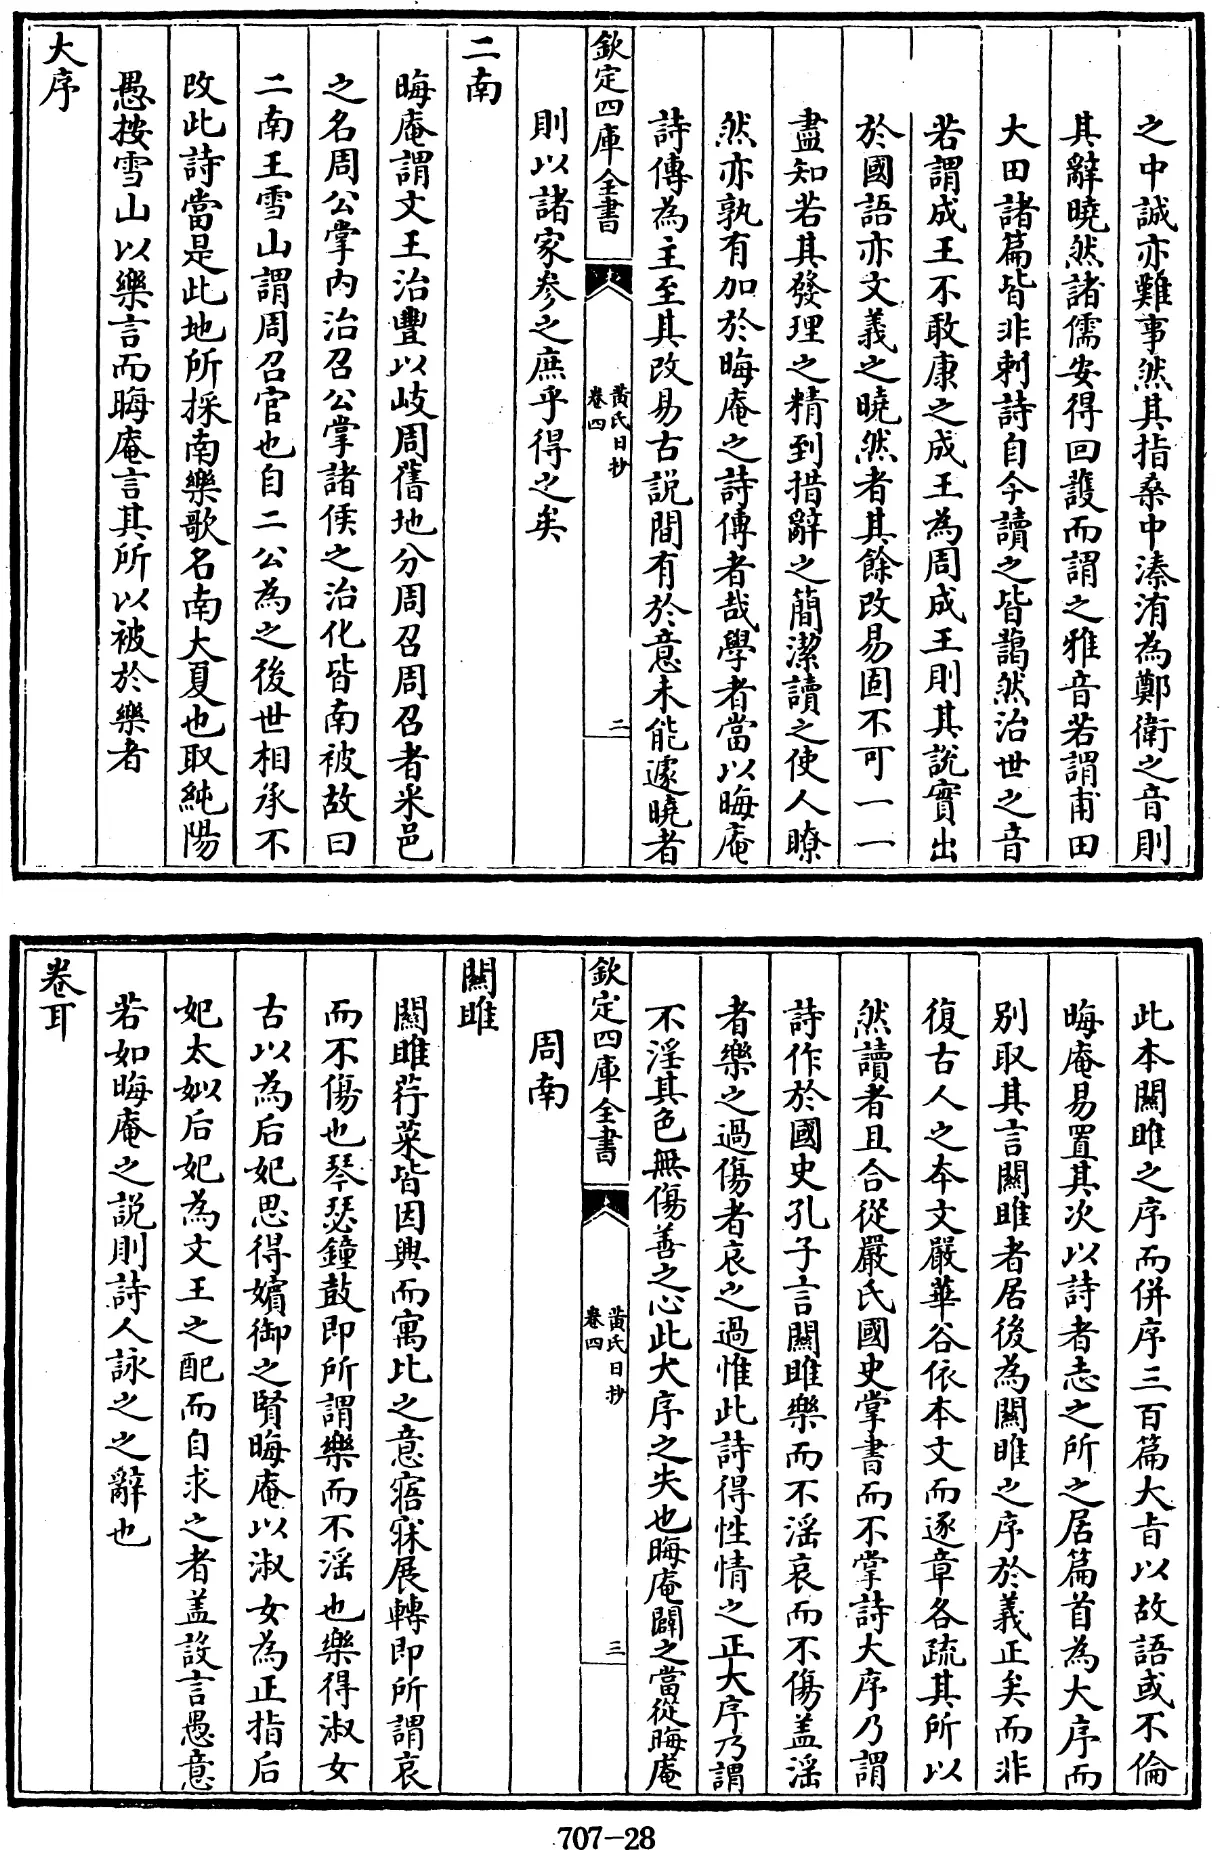 之中誠亦難事然其指桑中溱洧為鄭衛之音則
其辭曉然諸儒安得回護而謂之雅音若謂甫田
大田諸篇皆非刺詩自今讀之皆藹然治世之音
若謂成王不敢康之成王為周成王則其說實出
於國語亦文義之曉然者其餘改易固不可一一
盡知若其發理之精到措辭之簡潔讀之使人瞭
然亦孰有加於晦庵之詩傳者哉學者當以晦庵
詩傳為主至其改易古說間有於意未能遽曉者
欽定四庫全書
黃氏日抄
卷四
二
則以諸家參之庶乎得之矣
二南
晦庵謂文王治豐以岐周舊地分周召周召者采邑
之名周公掌內治召公掌諸侯之治化皆南被故曰
二南王雪山謂周召官也自二公為之後世相承不
改此詩當是此地所採南樂歌名南大夏也取純陽
愚按雪山以樂言而晦庵言其所以被於樂者
大序
此本關雎之序而併序三百篇大旨以故語或不倫
晦庵易置其次以詩者志之所之居篇首為大序而
別取其言關雎者居後為關雎之序於義正矣而非
復古人之本文嚴華谷依本文而逐章各疏其所以
然讀者且合從嚴氏國史掌書而不掌詩大序乃謂
詩作於國史孔子言關雎樂而不淫哀而不傷蓋淫
者樂之過傷者哀之過惟此詩得性情之正大序乃謂
不淫其色無傷善之心此大序之失也晦庵闢之當從晦庵
欽定四庫全書
黃氏日抄
卷四
三
周南
關雎
關雎荇菜皆因興而寓比之意寤寐展轉即所謂哀
而不傷也琴瑟鐘鼓即所謂樂而不淫也樂得淑女
古以為后妃思得嬪御之賢晦庵以淑女為正指后
妃太姒后妃為文王之配而自求之者蓋設言愚意
若如晦庵之說則詩人詠之之辭也
卷耳
707-28